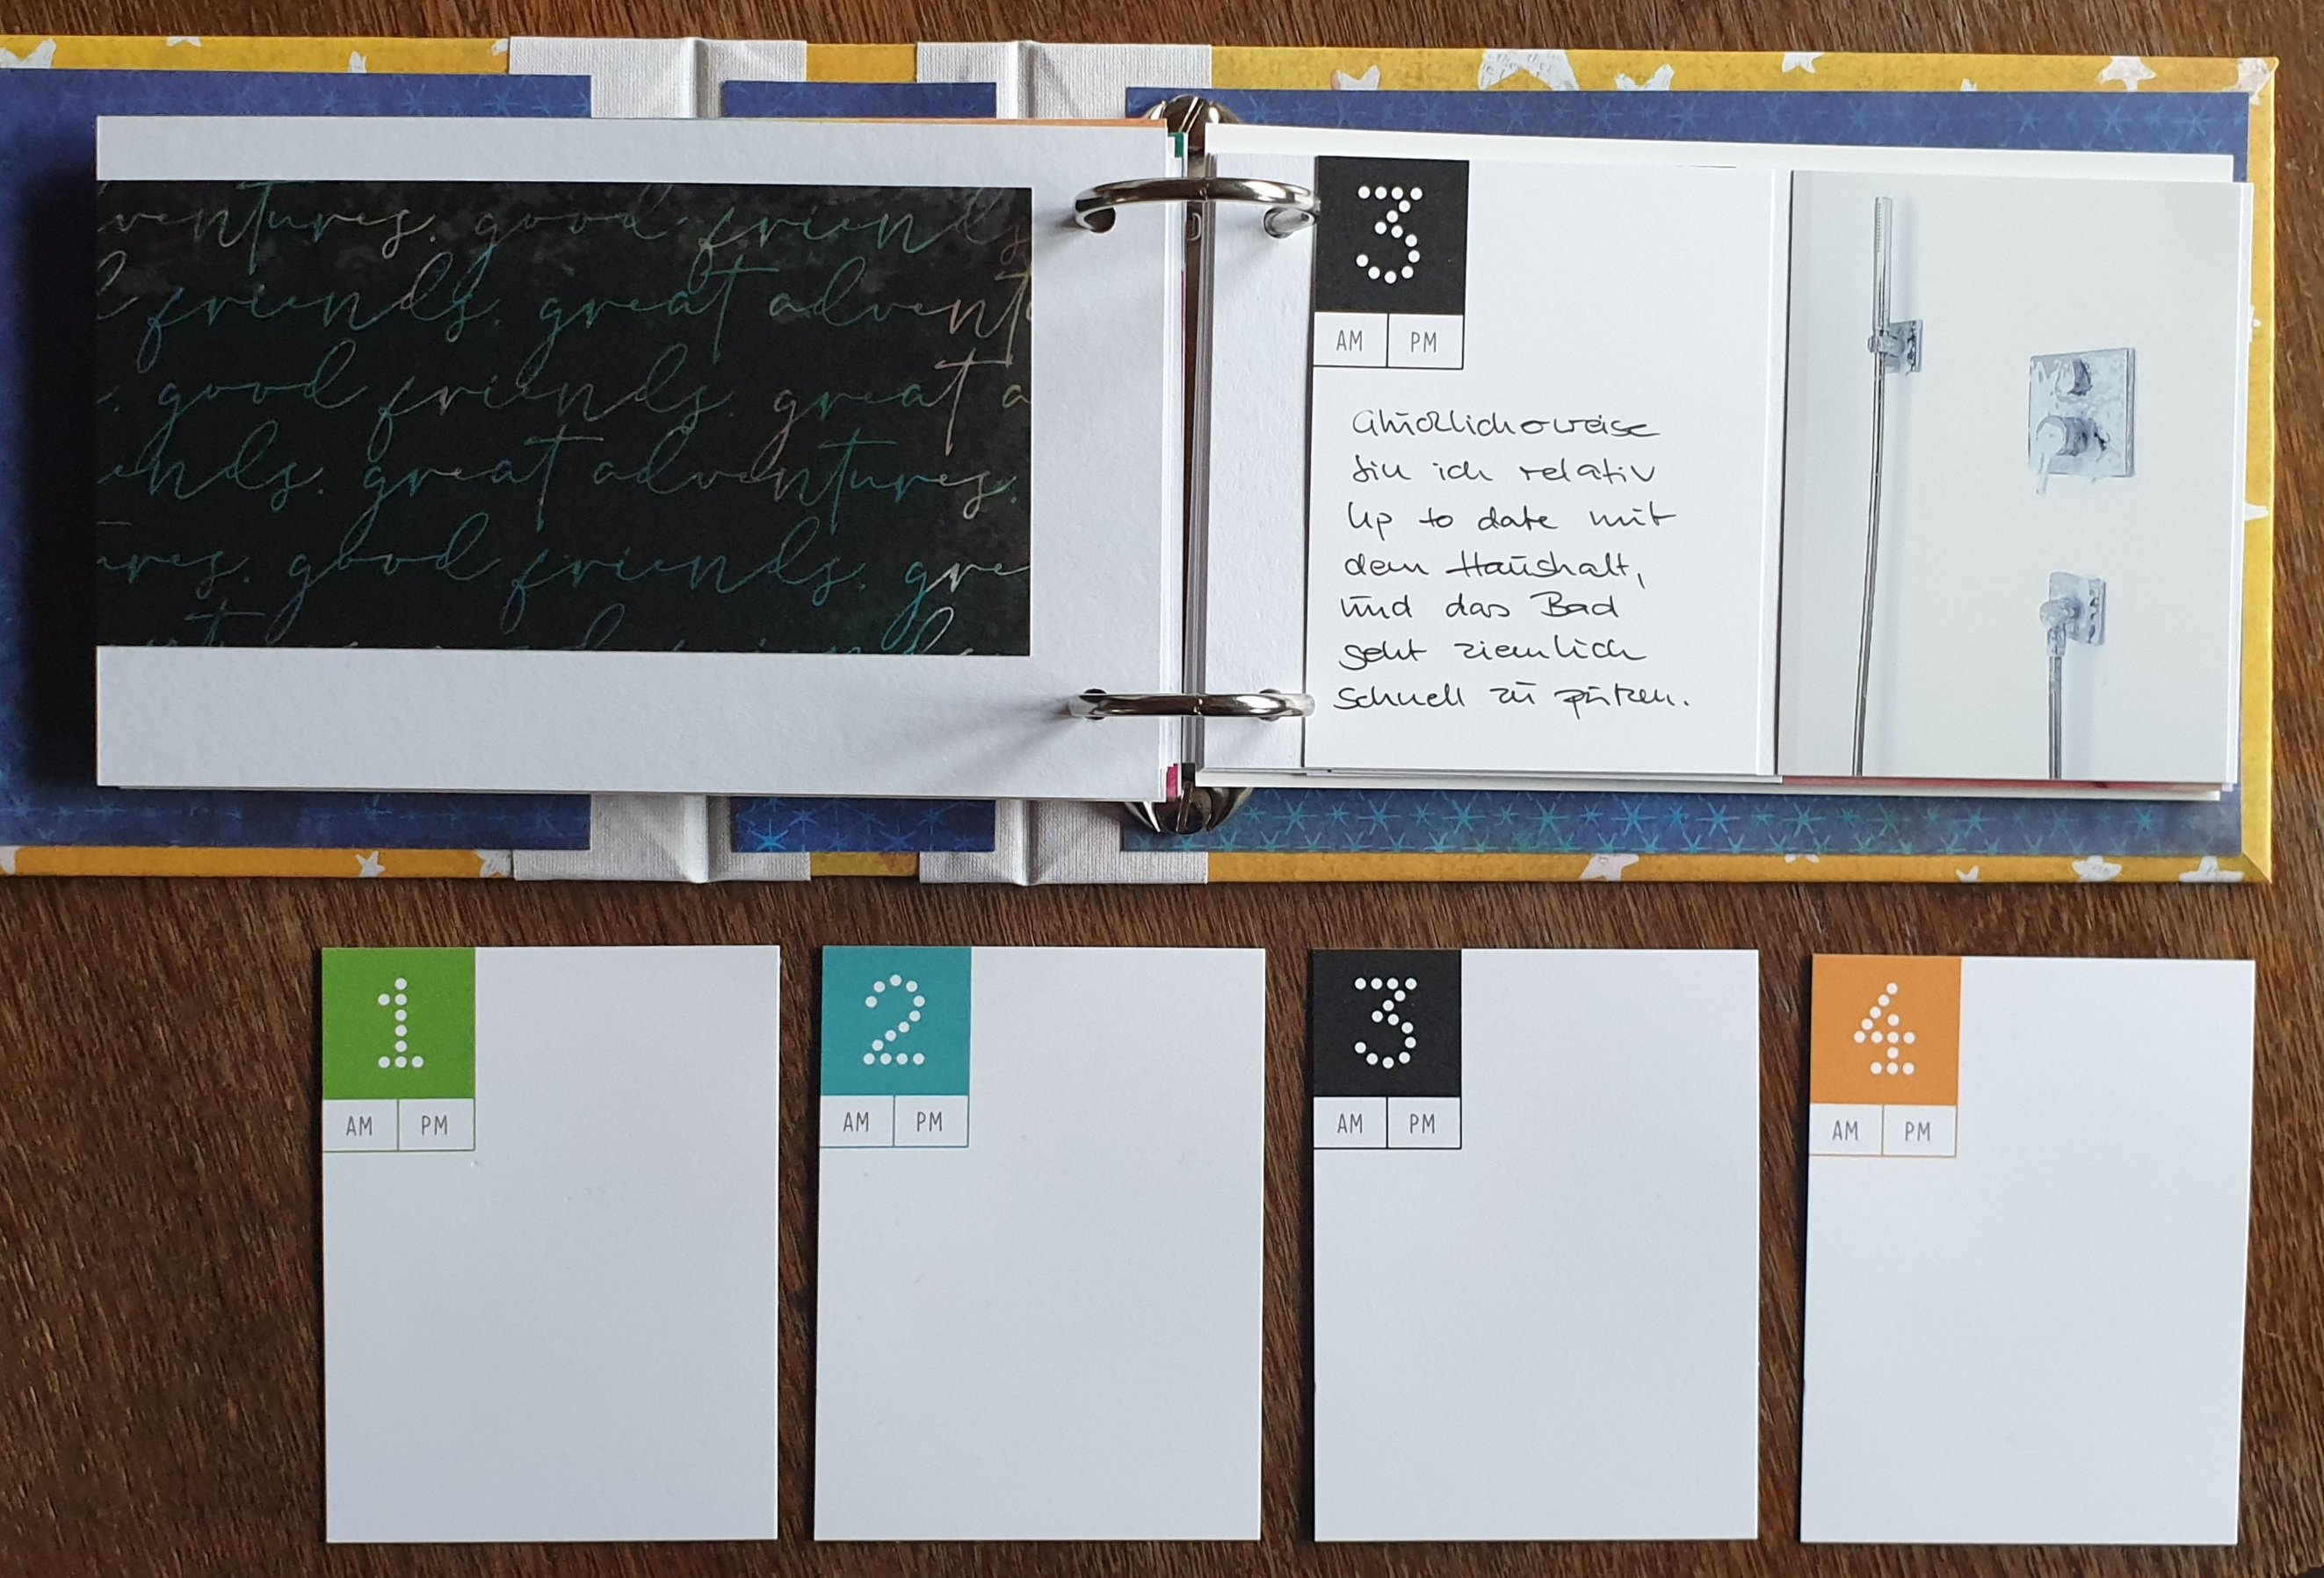 ventures. good friends
friends. great advent
. good friends. great a
ends. great adventures.
ures. good friends. gre
3
AM PM
Glücklicherweise
bin ich relativ
up to date mit
dem Haushalt,
und das Bad
geht ziemlich
schnell zu putzen.
1
AM PM
2
AM PM
3
AM PM
4
AM PM